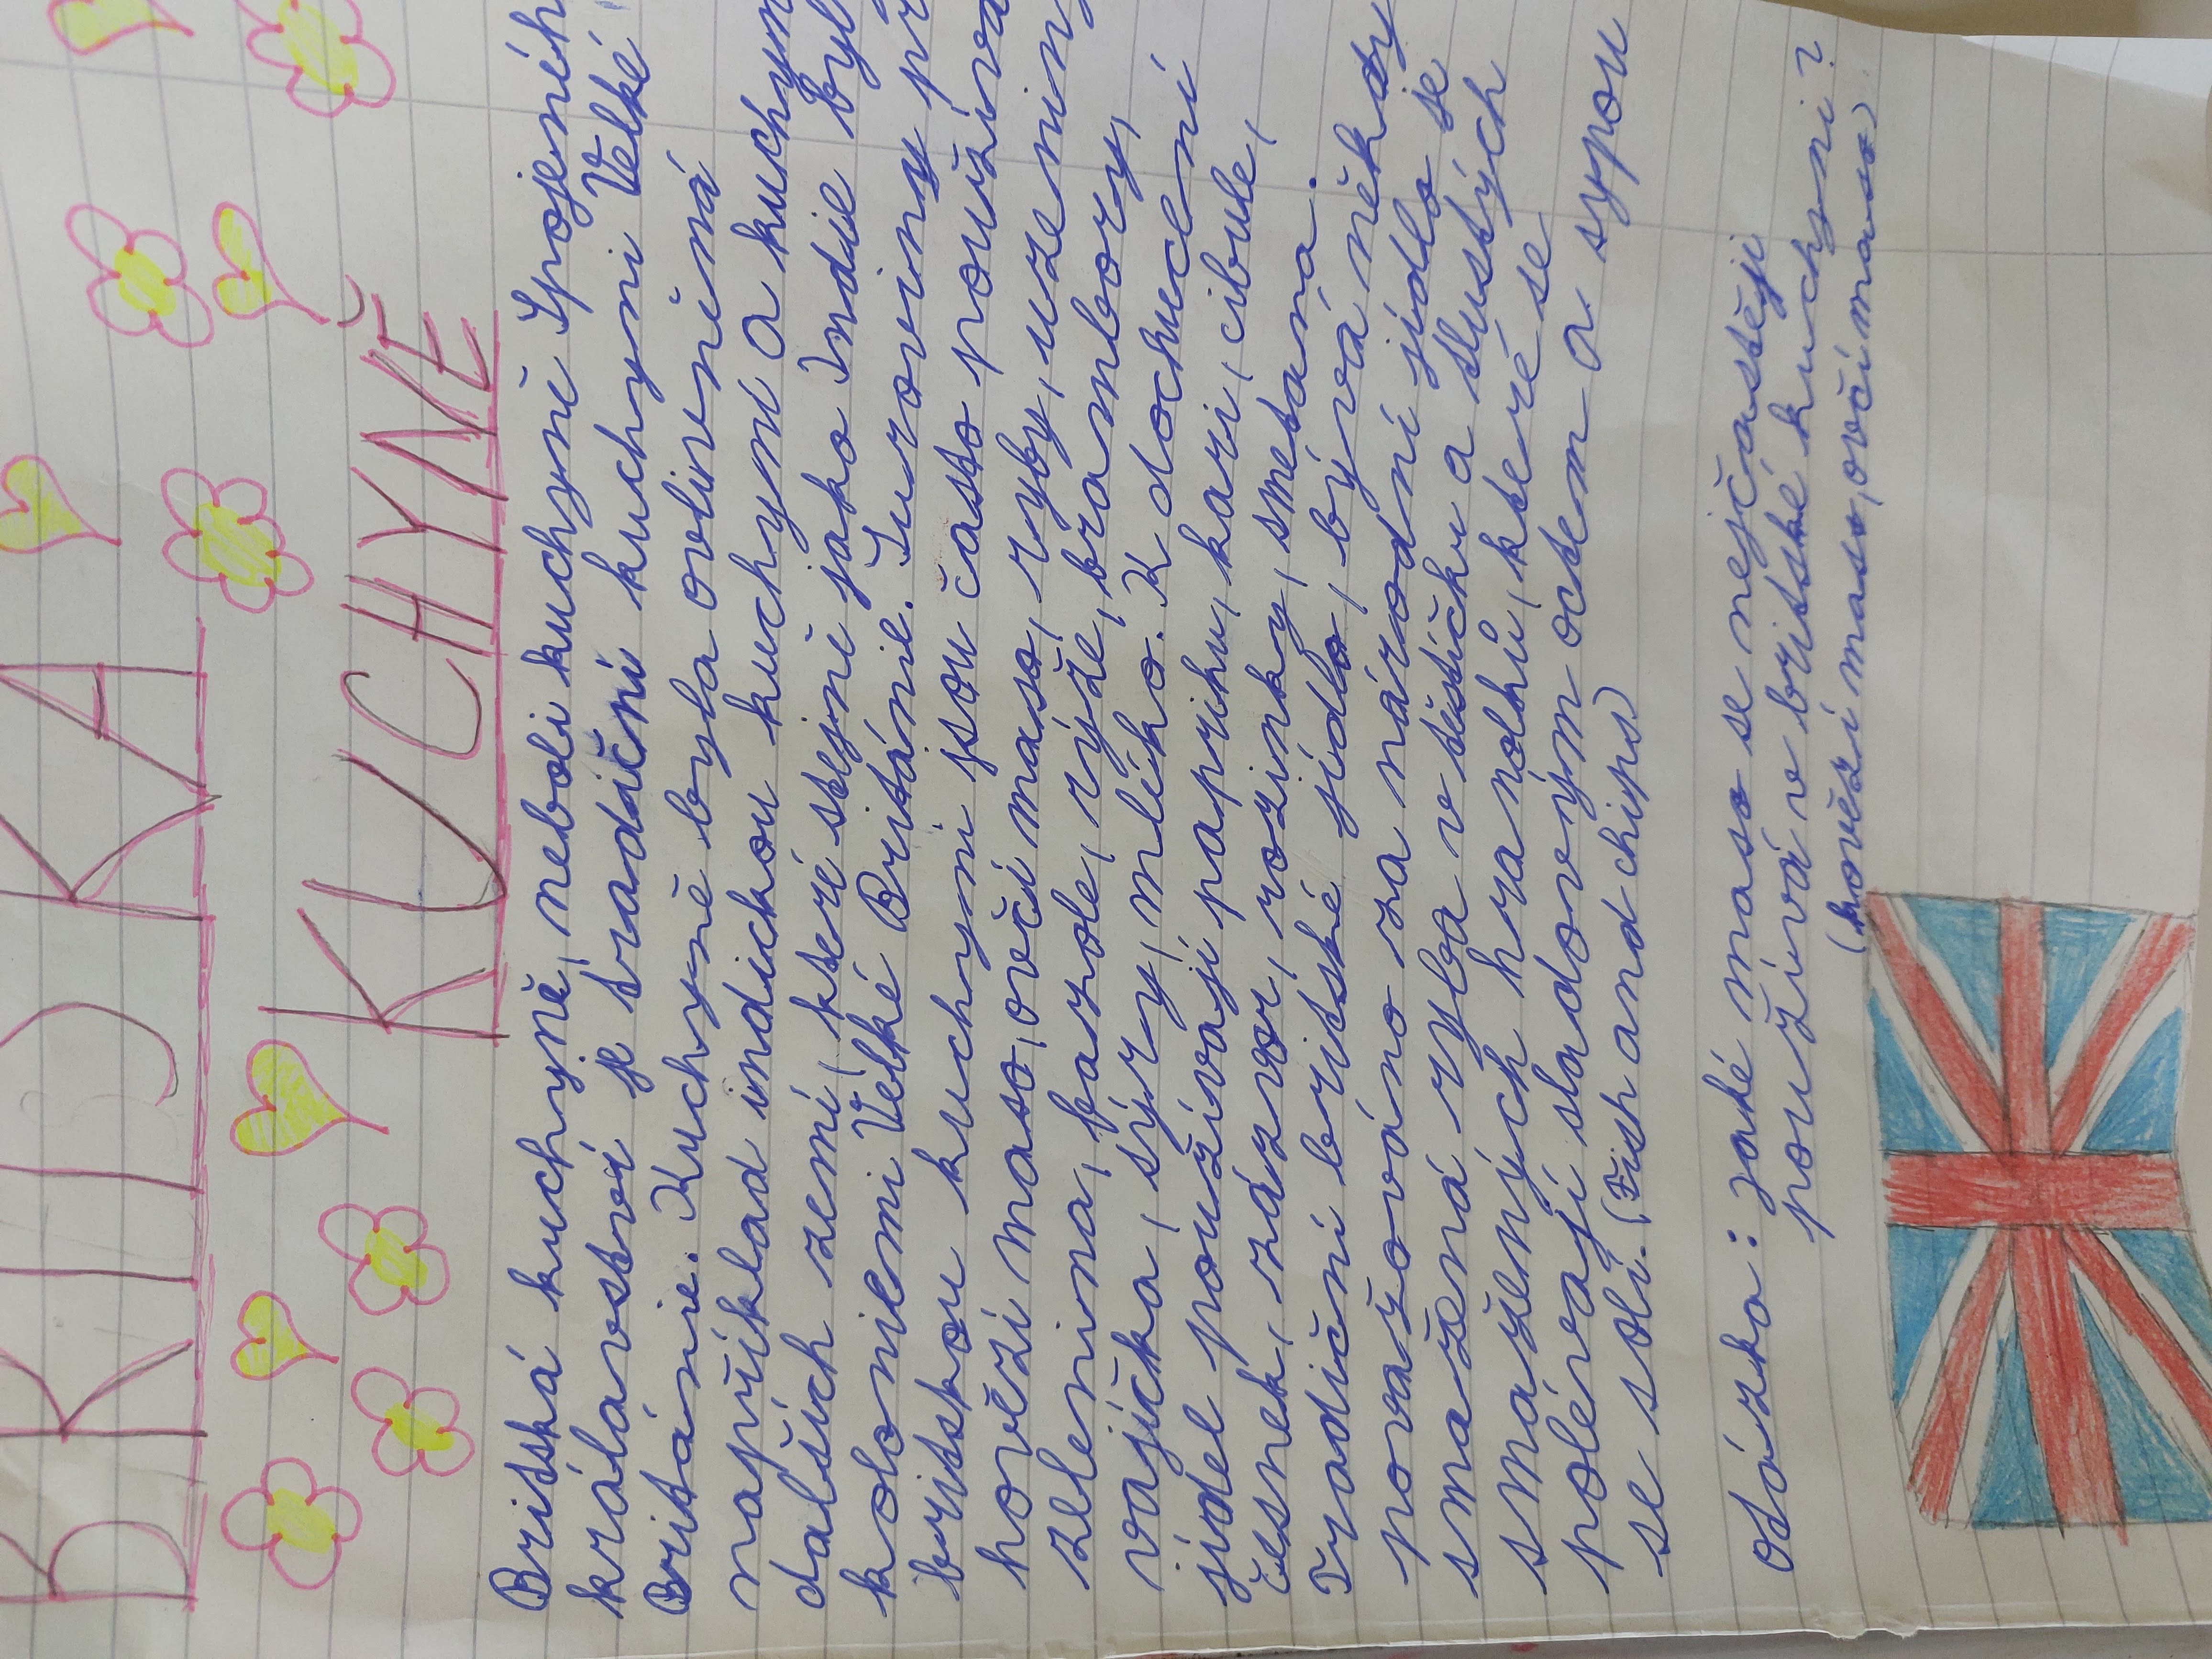 BRITSKÁ
KUCHYNĚ
Britská kuchyně, neboli kuchyně Spojeného
království je tradiční kuchyní Velké
Británie. Kuchyně byla ovlivněná
například indickou kuchyní a kuchyn
dalších zemí, které stejně jako Indie byl
koloniemi Velké Británie. Suroviny pr
britskou kuchyni jsou často používa
hovězí maso, ovčí maso, ryby, uzenin
zelenina, fazole, rýže, brambory,
vajíčka, sýry, mléko. K dochucení
jídel používají papriku, kari, cibule,
česnek, zázvor, rozinky, smetana.
Tradiční britské jídlo, bývá někdy
považováno za národní jídlo je
smažená ryba v těstíčku a tlustých
smažených hranolků, které se
polévají sladovým octem a sypou
se solí. (Fish and chips)
otázka: jaké maso se nejčastěji
používá v britské kuchyni?
(hovězí maso, ovčí maso)